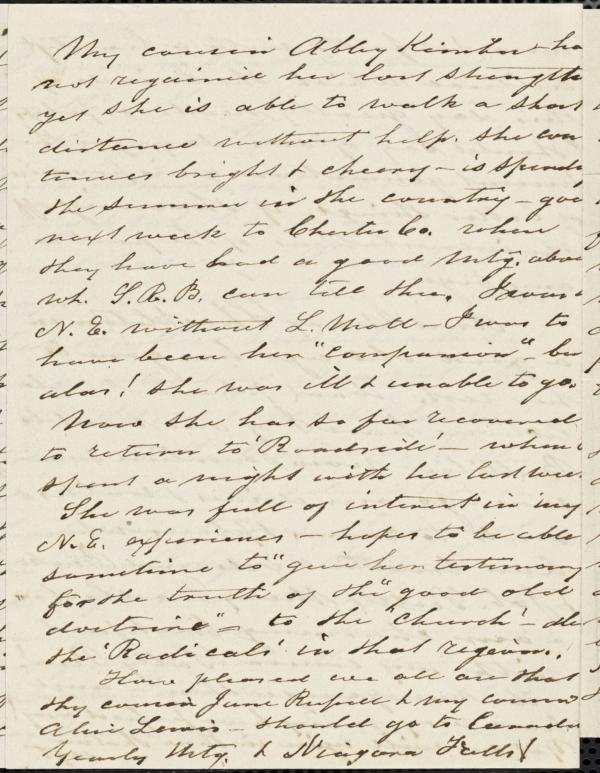 My cousin Abby Kimber - ha
not regained her lost strength
yet she is able to walk a short
distance without help. She con
tinues bright & cheery - is spend
the summer in the country - goe
next week to Chester Co. where
they have had a good Mtg. abou
wh. S. R. B. can tell thee. I was
N. E. without L. Mott - I was to
have been her "companion" - bu
alas! she was ill & unable to go.
Now she has so far recovered
to return to 'Roadside' - where
spent a night with her last wee
She was full of interest in my
N. E. experiences - hopes to be able
sometime to "give her testimony
for the truth of the "good old
doctrine" - to the 'church' - 
the 'Radicals' in that region.
How pleased we all are that
thy cousin Jane Russell & my cousin
Alice Lewis - should go to Canada
Yearly Mtg. & Niagara Falls!